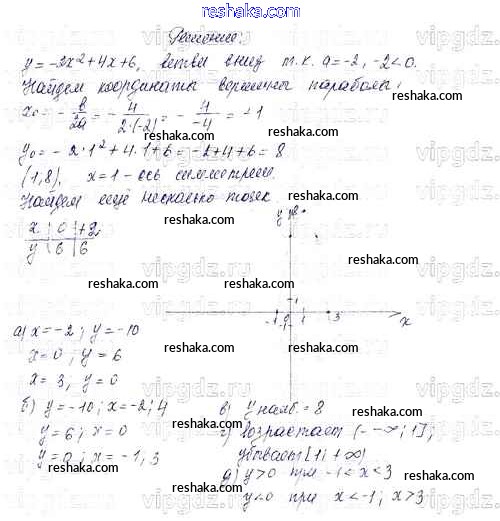 Решение:
y = -2x² + 4x + 6, ветви вниз т.к. a = -2, -2 < 0.
Найдем координаты вершины параболы:
x₀ = - в/2a = - 4/2·(-2) = - 4/-4 = -1
y₀ = - 2·1² + 4·1 + 6 = -2 + 4 + 6 = 8
(1,8), x = 1 - ось симметрии.
Найдем ещё несколько точек
x | 0 | +2
y | 6 | 6
y
1
-1 0 1 3 x
а) x = -2; y = -10
x = 0; y = 6
x = 3, y = 0
б) y = -10; x = -2; 4
y = 6; x = 0
y = 0; x = -1, 3
в) y наиб. = 8
г) возрастает (-∞; 1];
убывает [1; +∞)
д) y > 0 при -1 < x < 3
y < 0 при x < -1; x > 3
reshaka.com
reshaka.com
reshaka.com
reshaka.com
reshaka.com
reshaka.com
reshaka.com
reshaka.com
reshaka.com
reshaka.com
reshaka.com
reshaka.com
reshaka.com
vipgdz.ru
vipgdz.ru
vipgdz.ru